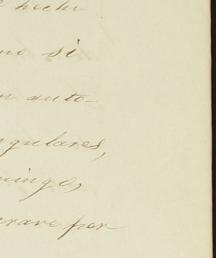 hecho
no si
n auto-
ngulares,
mingo,
grave por